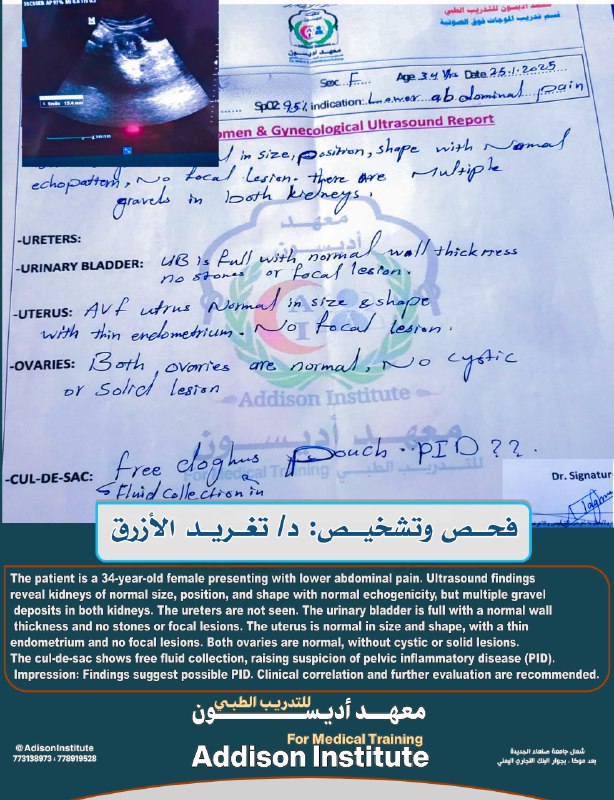 معهد أديسون للتدريب الطبي
قسم تدريب الموجات فوق الصوتية
معهد أديسون
Sex: F Age 34 Yrs Date 25.1.2025
SpO2 95% indication: Lower abdominal pain
omen & Gynecological Ultrasound Report
in size, position, shape with Normal
echopattern, No focal lesion. there are Multiple
gravels in both kidneys.
-URETERS:
-URINARY BLADDER: UB is full with normal wall thickness
no stones or focal lesion.
-UTERUS: AVF utrus Normal in size & shape
with thin endometrium. No focal lesion.
-OVARIES: Both, ovaries are normal, No cystic
or Solid lesion
معهد أديسون
Addison Institute
معهد أديسون
For Medical Training للتدريب الطبي
-CUL-DE-SAC: free doghus pouch .. PID ??.
Fluid collection in
Dr. Signatur
فحص وتشخيص: د/ تغريد الأزرق
The patient is a 34-year-old female presenting with lower abdominal pain. Ultrasound findings
reveal kidneys of normal size, position, and shape with normal echogenicity, but multiple gravel
deposits in both kidneys. The ureters are not seen. The urinary bladder is full with a normal wall
thickness and no stones or focal lesions. The uterus is normal in size and shape, with a thin
endometrium and no focal lesions. Both ovaries are normal, without cystic or solid lesions.
The cul-de-sac shows free fluid collection, raising suspicion of pelvic inflammatory disease (PID).
Impression: Findings suggest possible PID. Clinical correlation and further evaluation are recommended.
معهد أديسون للتدريب الطبي
For Medical Training
Addison Institute
@AdisonInstitute
773138973 : 778919528
شمال جامعة صنعاء الجديدة
بعد موكا ، بجوار البنك التجاري اليمني